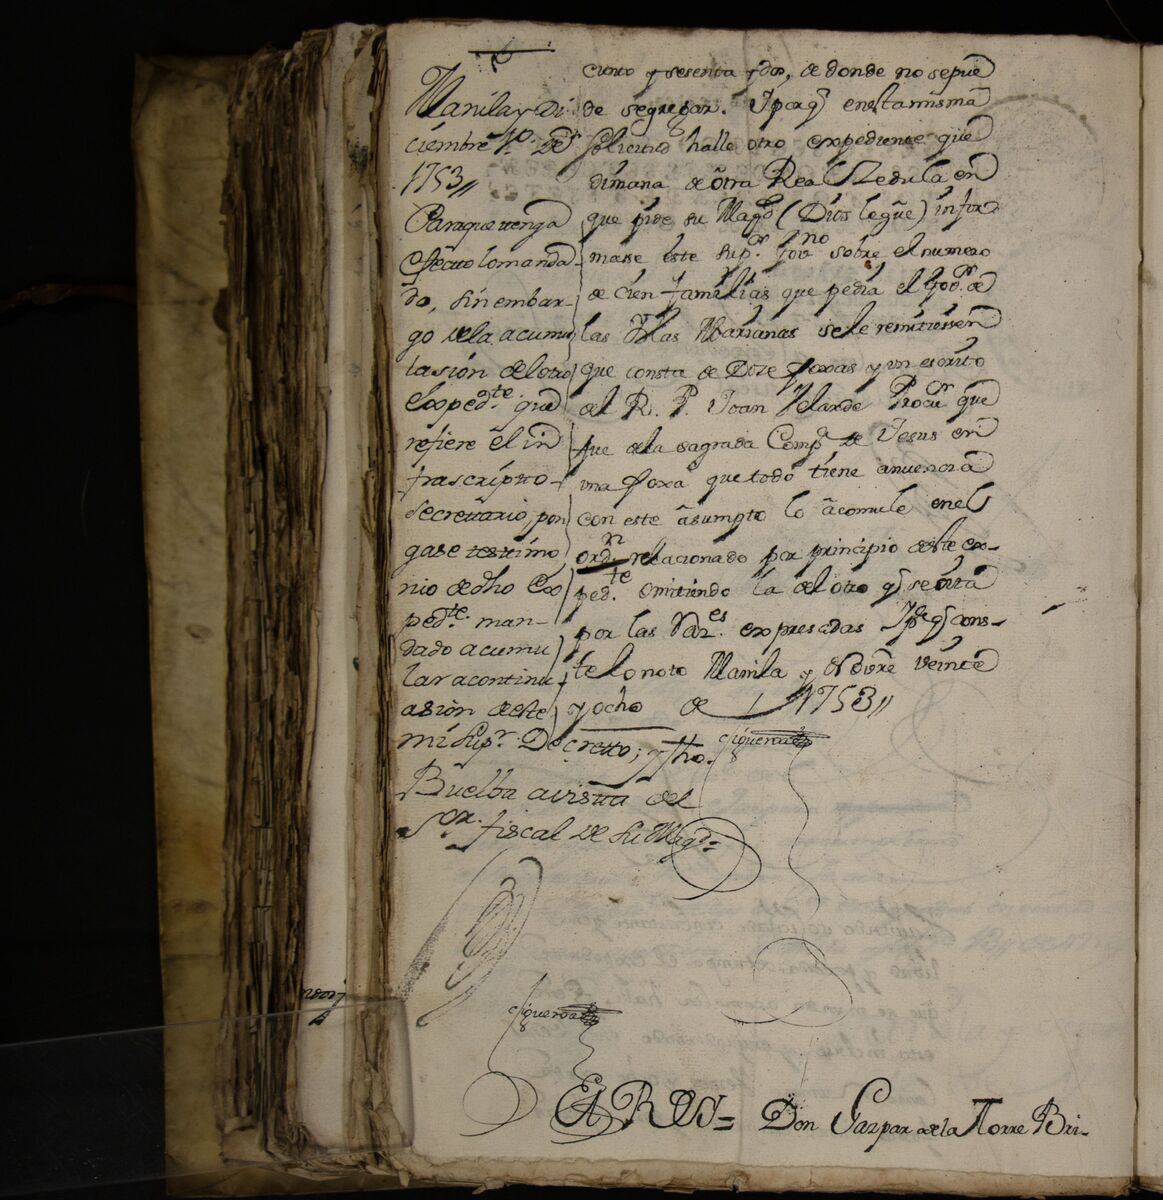 Manila y Di
ciembre 1º. De
1753,,
Para que venga
efecto lo manda
do, sin embar-
go de la acumu
lasión del otro
Exped.te que
refiere el in
frascripto
Secretario, pon
gase testimo
nio de dho Ex
ped.te man-
dado acumu
lar a continu-
asión de este
mi Sup.r Decretto; y fho.
Buelba a vista del
S.or fiscal de Su Mag.d =
ciento y sesenta y dos, de donde no se pue
de segregar. Y porq̃ en esta misma
solicitud halle otro expediente que
dimana de otra Real Zedula en
que pide su Mag.d (Dios le gũe) infor
mase este Sup.or Gov.no sobre el numero
de cien familias que pedia el Gov.or de
las Yslas Marianas se le remitiessen
que consta de Doze foxas y un escrito
del R. P. Joan Velarde Procu.r que
fue de la sagrada Comp.a de Jesus en
una foxa que todo tiene anuencia
con este asumpto lo acomule en el
ordn relacionado por principio de este ex-
ped.te omitiendo la del otro q̃ se cita
por las expresadas Y p.a q̃ cons-
te lo noto Manila y Novre veinte
y ocho de 1753,,
Figueroa
Figueroa
Don Gaspar de la Torre Bri-